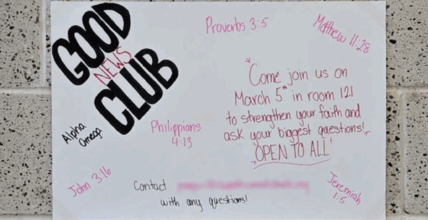 GOOD
NEWS
CLUB
Alpha
Omega
Proverbs 3:5
Matthew 11:28
"Come join us on
March 5th in room 121
to strengthen your faith and
ask your biggest questions!
"OPEN TO ALL"
Philippians
4:13
John 3:16
Contact
with any questions!
Jeremiah